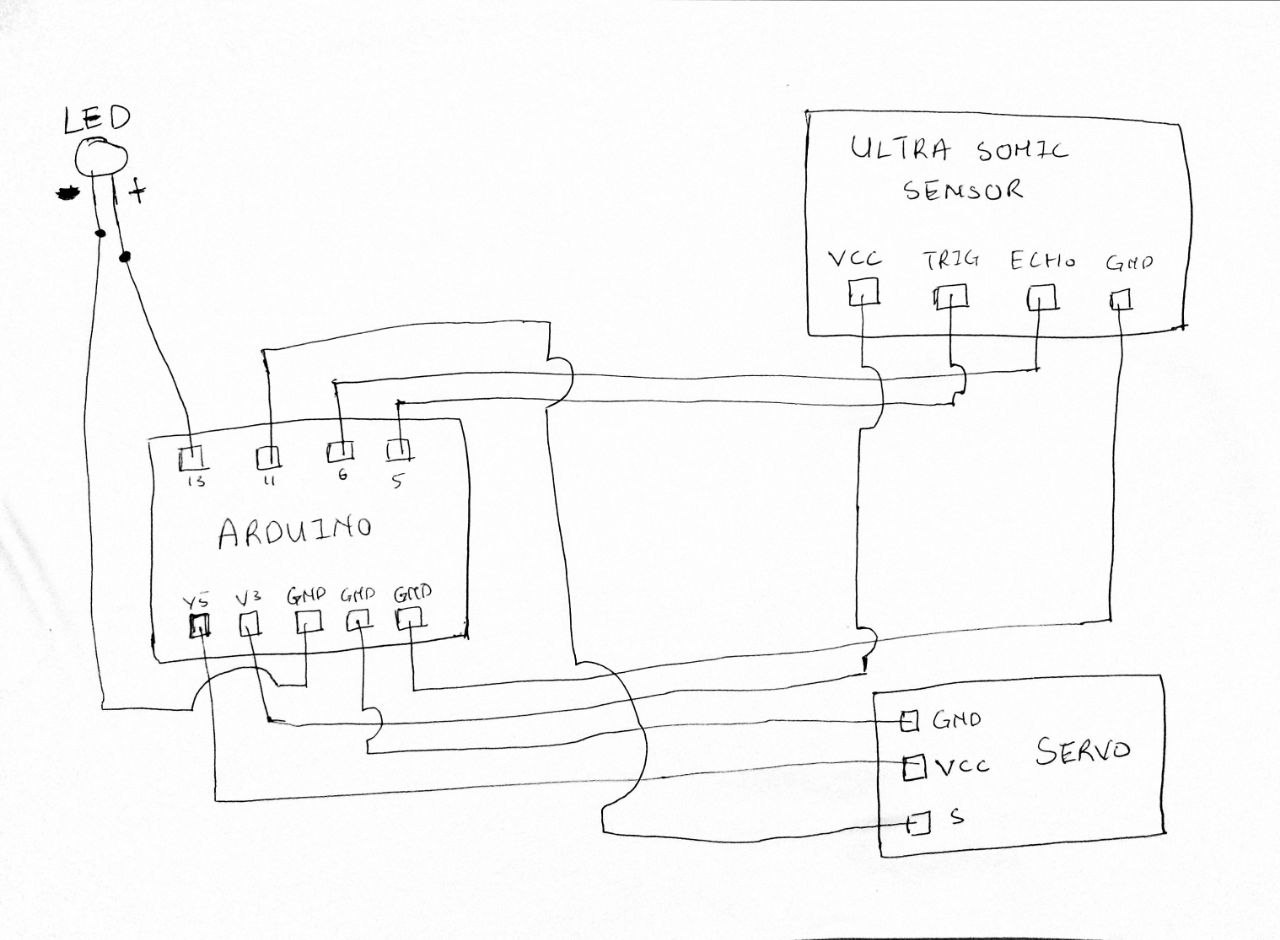 LED
- +
ULTRA SONIC
SENSOR
VCC TRIG ECHO GND
13 11 6 5
ARDUINO
V5 V3 GND GND GND
GND
VCC
SERVO
S